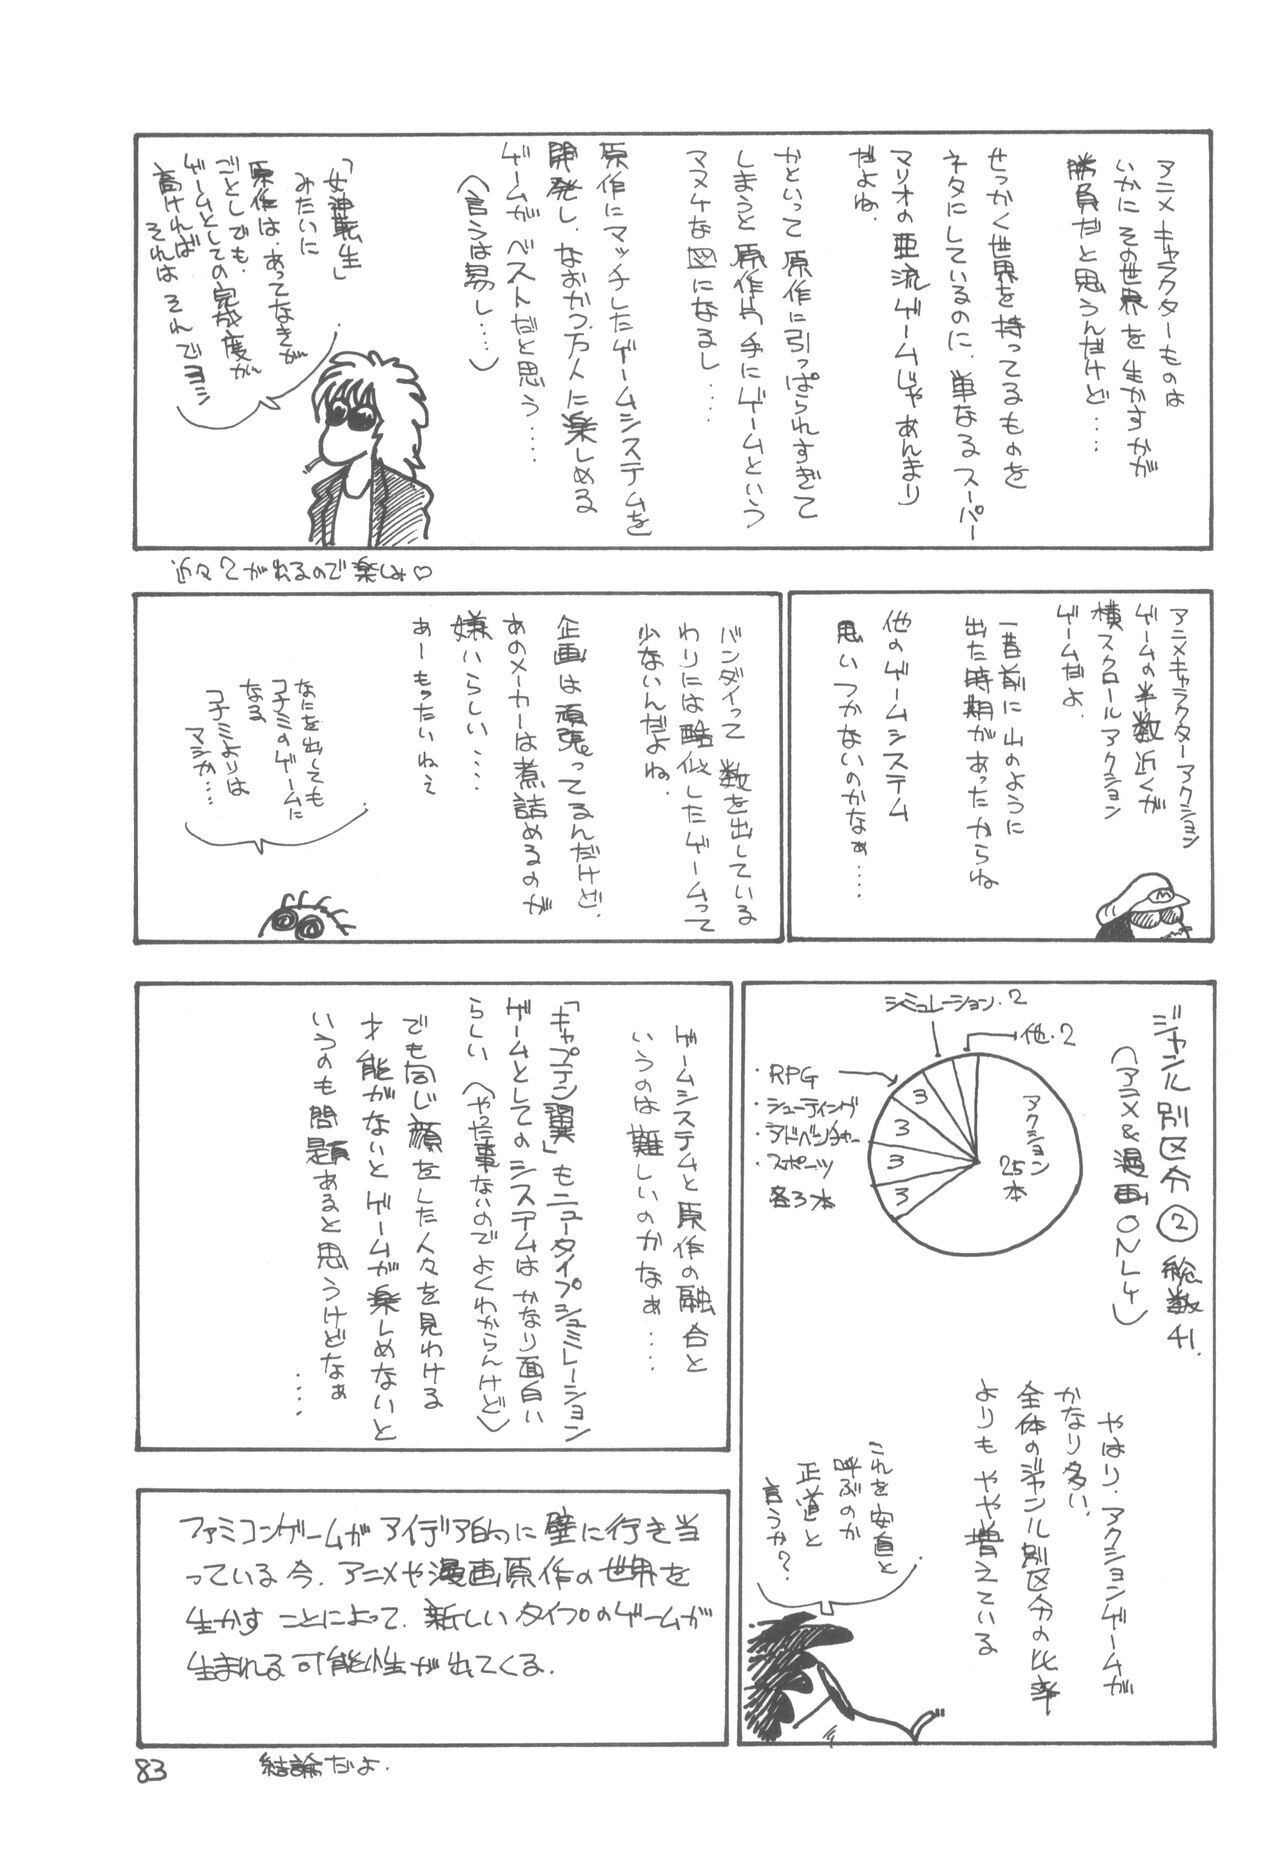 アニメキャラクターものは
いかにその世界を生かすかが
勝負だと思うんだけど‥‥
せっかく世界を持ってるものを
ネタにしているのに、単なるスーパー
マリオの亜流ゲームじゃあんまり
だよね。
かといって原作に引っぱられすぎて
しまうと原作片手にゲームという
マヌケな図になるし‥‥
原作にマッチしたゲームシステムを
開発し、なおかつ万人に楽しめる
ゲームがベストだと思う‥‥
(言うは易し‥‥)
「女神転生」
みたいに
原作は、あってなきが
ごとしでも、
ゲームとしての完成度が
高ければ
それは それでヨシ
近々2が出るので楽しみ♡
アニメキャラクターアクション
ゲームの半数近くが
横スクロールアクション
ゲームだよ。
一昔前に山のように
出た時期があったからね
他のゲームシステム
思いつかないのかなぁ‥‥
バンダイって数を出している
わりには酷似したゲームって
少ないんだよね。
企画は頑張ってるんだけど、
あのメーカーは煮詰めるのが
嫌いらしい‥‥
あーもったいねぇ
なにを出しても
コナミのゲームに
なる
コナミよりは
マシか‥‥
ジャンル別区分② 総数41.
(アニメ&漫画ONLY)
シミュレーション・2
他・2
・RPG
・シューティング
・アドベンチャー
・スポーツ
各3本
3
3
3
3
アクション
25本
やはり、アクションゲームが
かなり多い、
全体のジャンル別区分の比率
よりも やや増えている
これを安直と
呼ぶのか
正道と
言うか?
ゲームシステムと原作の融合と
いうのは難しいのかなぁ‥‥
「キャプテン翼」もニュータイプシュミレーション
ゲームとしてのシステムはかなり面白い
らしい(やった事ないのでよくわからんけど)
でも同じ顔をした人々を見わける
才能がないとゲームが楽しめないと
いうのも問題あると思うけどなぁ
‥‥
ファミコンゲームがアイデア的に壁に行き当
っている今、アニメや漫画原作の世界を
生かすことによって、新しいタイプのゲームが
生まれる可能性が出てくる。
結論だよ.
83